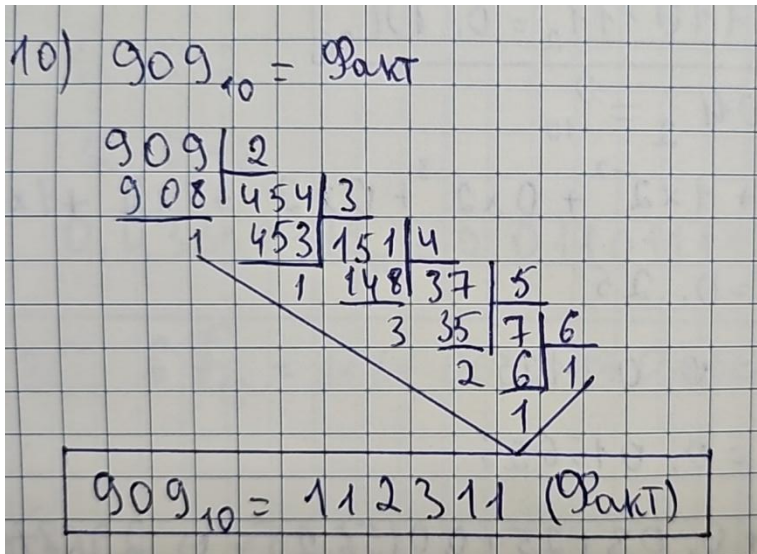 10) 909₁₀ = Факт
909 2
908 454 3
1 453 151 4
1 148 37 5
3 35 7 6
2 6 1
1
909₁₀ = 112311 (Факт)